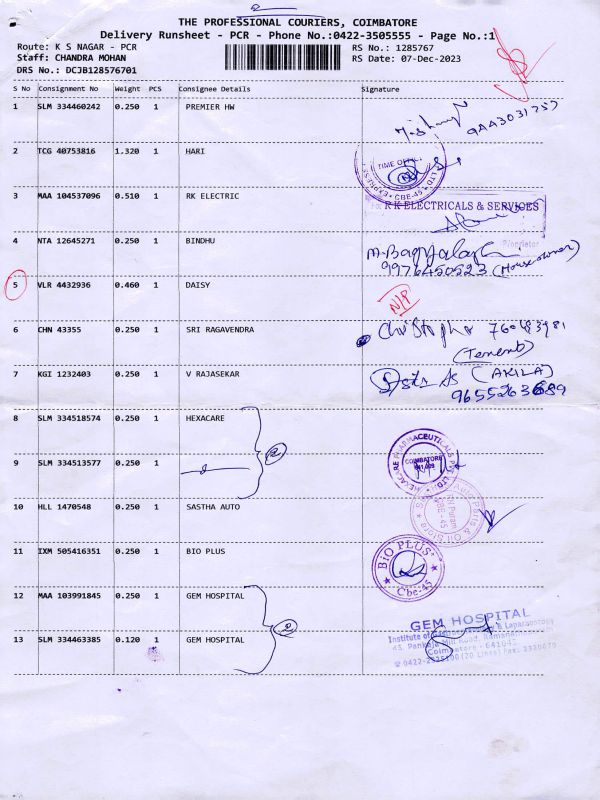 2
THE PROFESSIONAL COURIERS, COIMBATORE
Delivery Runsheet - PCR - Phone No.:0422-3505555 - Page No.:1
Route: K S NAGAR - PCR
RS No.: 1285767
Staff: CHANDRA MOHAN
RS Date: 07-Dec-2023
DRS No.: DCJB128576701
S No Consignment No Weight PCS Consignee Details Signature
1 SLM 334460242 0.250 1 PREMIER HW
2 TCG 40753816 1.320 1 HARI
TIME OFFICE
CBE-45
3 MAA 104537096 0.510 1 RK ELECTRIC
For R K ELECTRICALS & SERVICES
Proprietor
4 NTA 12645271 0.250 1 BINDHU
9976450523 (House owner)
5 VLR 4432936 0.460 1 DAISY N/P
6 CHN 43355 0.250 1 SRI RAGAVENDRA
(Tenent)
7 KGI 1232403 0.250 1 V RAJASEKAR (AKILA)
8 SLM 334518574 0.250 1 HEXACARE
2
HEXACARE PHARMACEUTICALS PVT. LTD.
COIMBATORE
9 SLM 334513577 0.250 1
10 HLL 1470548 0.250 1 SASTHA AUTO
11 IXM 505416351 0.250 1 BIO PLUS
BIO PLUS
Cbe-45
12 MAA 103991845 0.250 1 GEM HOSPITAL
2
GEM HOSPITAL
13 SLM 334463385 0.120 1 GEM HOSPITAL